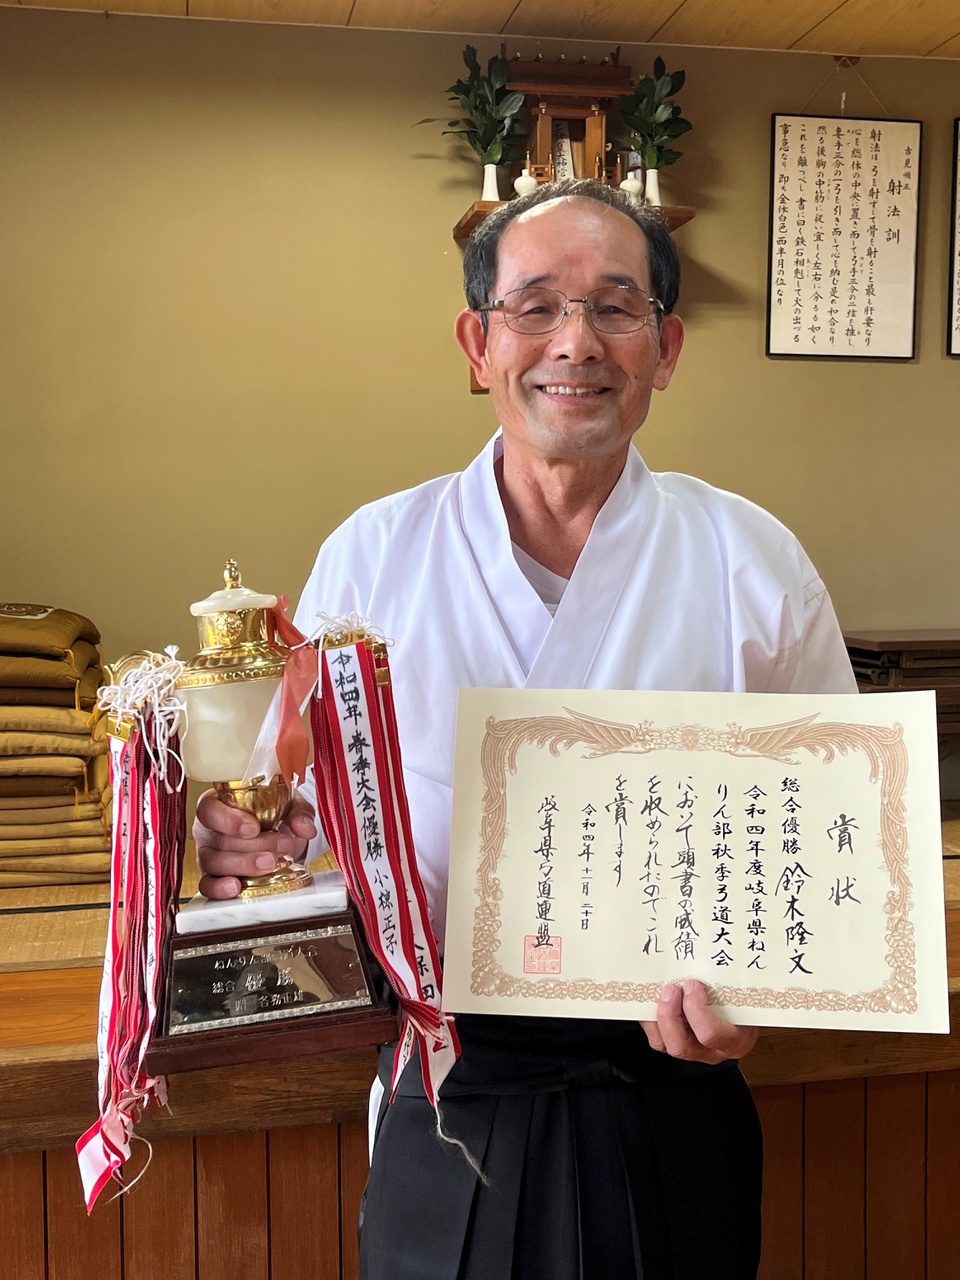 賞状
総合優勝 鈴木隆文
令和四年度岐阜県ねん
りん部秋季弓道大会
において頭書の成績
を収められたのでこれ
を賞します
令和四年十一月二十日
岐阜県弓道連盟
令和四年 春季大会優勝 小椋正子
久保田
ねんりん部
大会
総合 優勝
各務正雄
吉見順正
射法訓
射法は弓を射ずして骨を射ること最も肝要なり
心を総体の中央に置き而して弓手三分の二弦を推し
妻手三分の一弓を引き而して心を納む是れ和合なり
然る後胸の中筋に従い宜しく左右に分るる如く
これを離つべし 書に曰く鉄石相剋して火の出づる
事急なり 即ち金体白色西半月の位なり